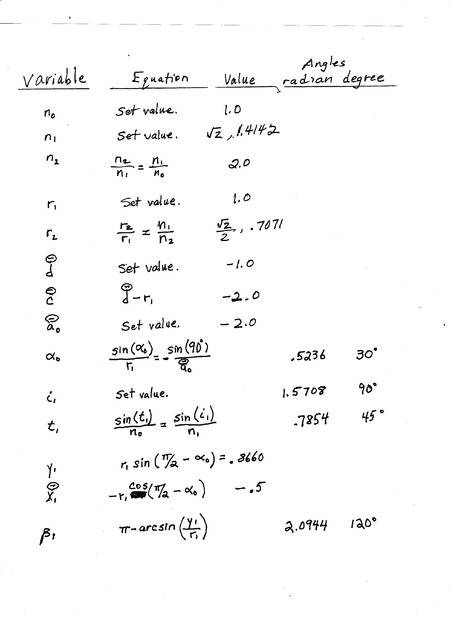 Angles
Variable Equation Value radian degree
n₀ Set value. 1.0
n₁ Set value. √2, 1.4142
n₂ n₂/n₁ = n₁/n₀ 2.0
r₁ Set value. 1.0
r₂ r₂/r₁ = n₁/n₂ √2/2, .7071
d Set value. -1.0
c d-r₁ -2.0
a₀ Set value. -2.0
α₀ sin(α₀)/r₁ = - sin(90°)/a₀ .5236 30°
i₁ Set value. 1.5708 90°
t₁ sin(t₁)/n₀ = sin(i₁)/n₁ .7854 45°
y₁ r₁ sin(π/2 - α₀) = .8660
x₁ -r₁ cos(π/2 - α₀) -.5
β₁ π-arcsin(y₁/r₁) 2.0944 120°